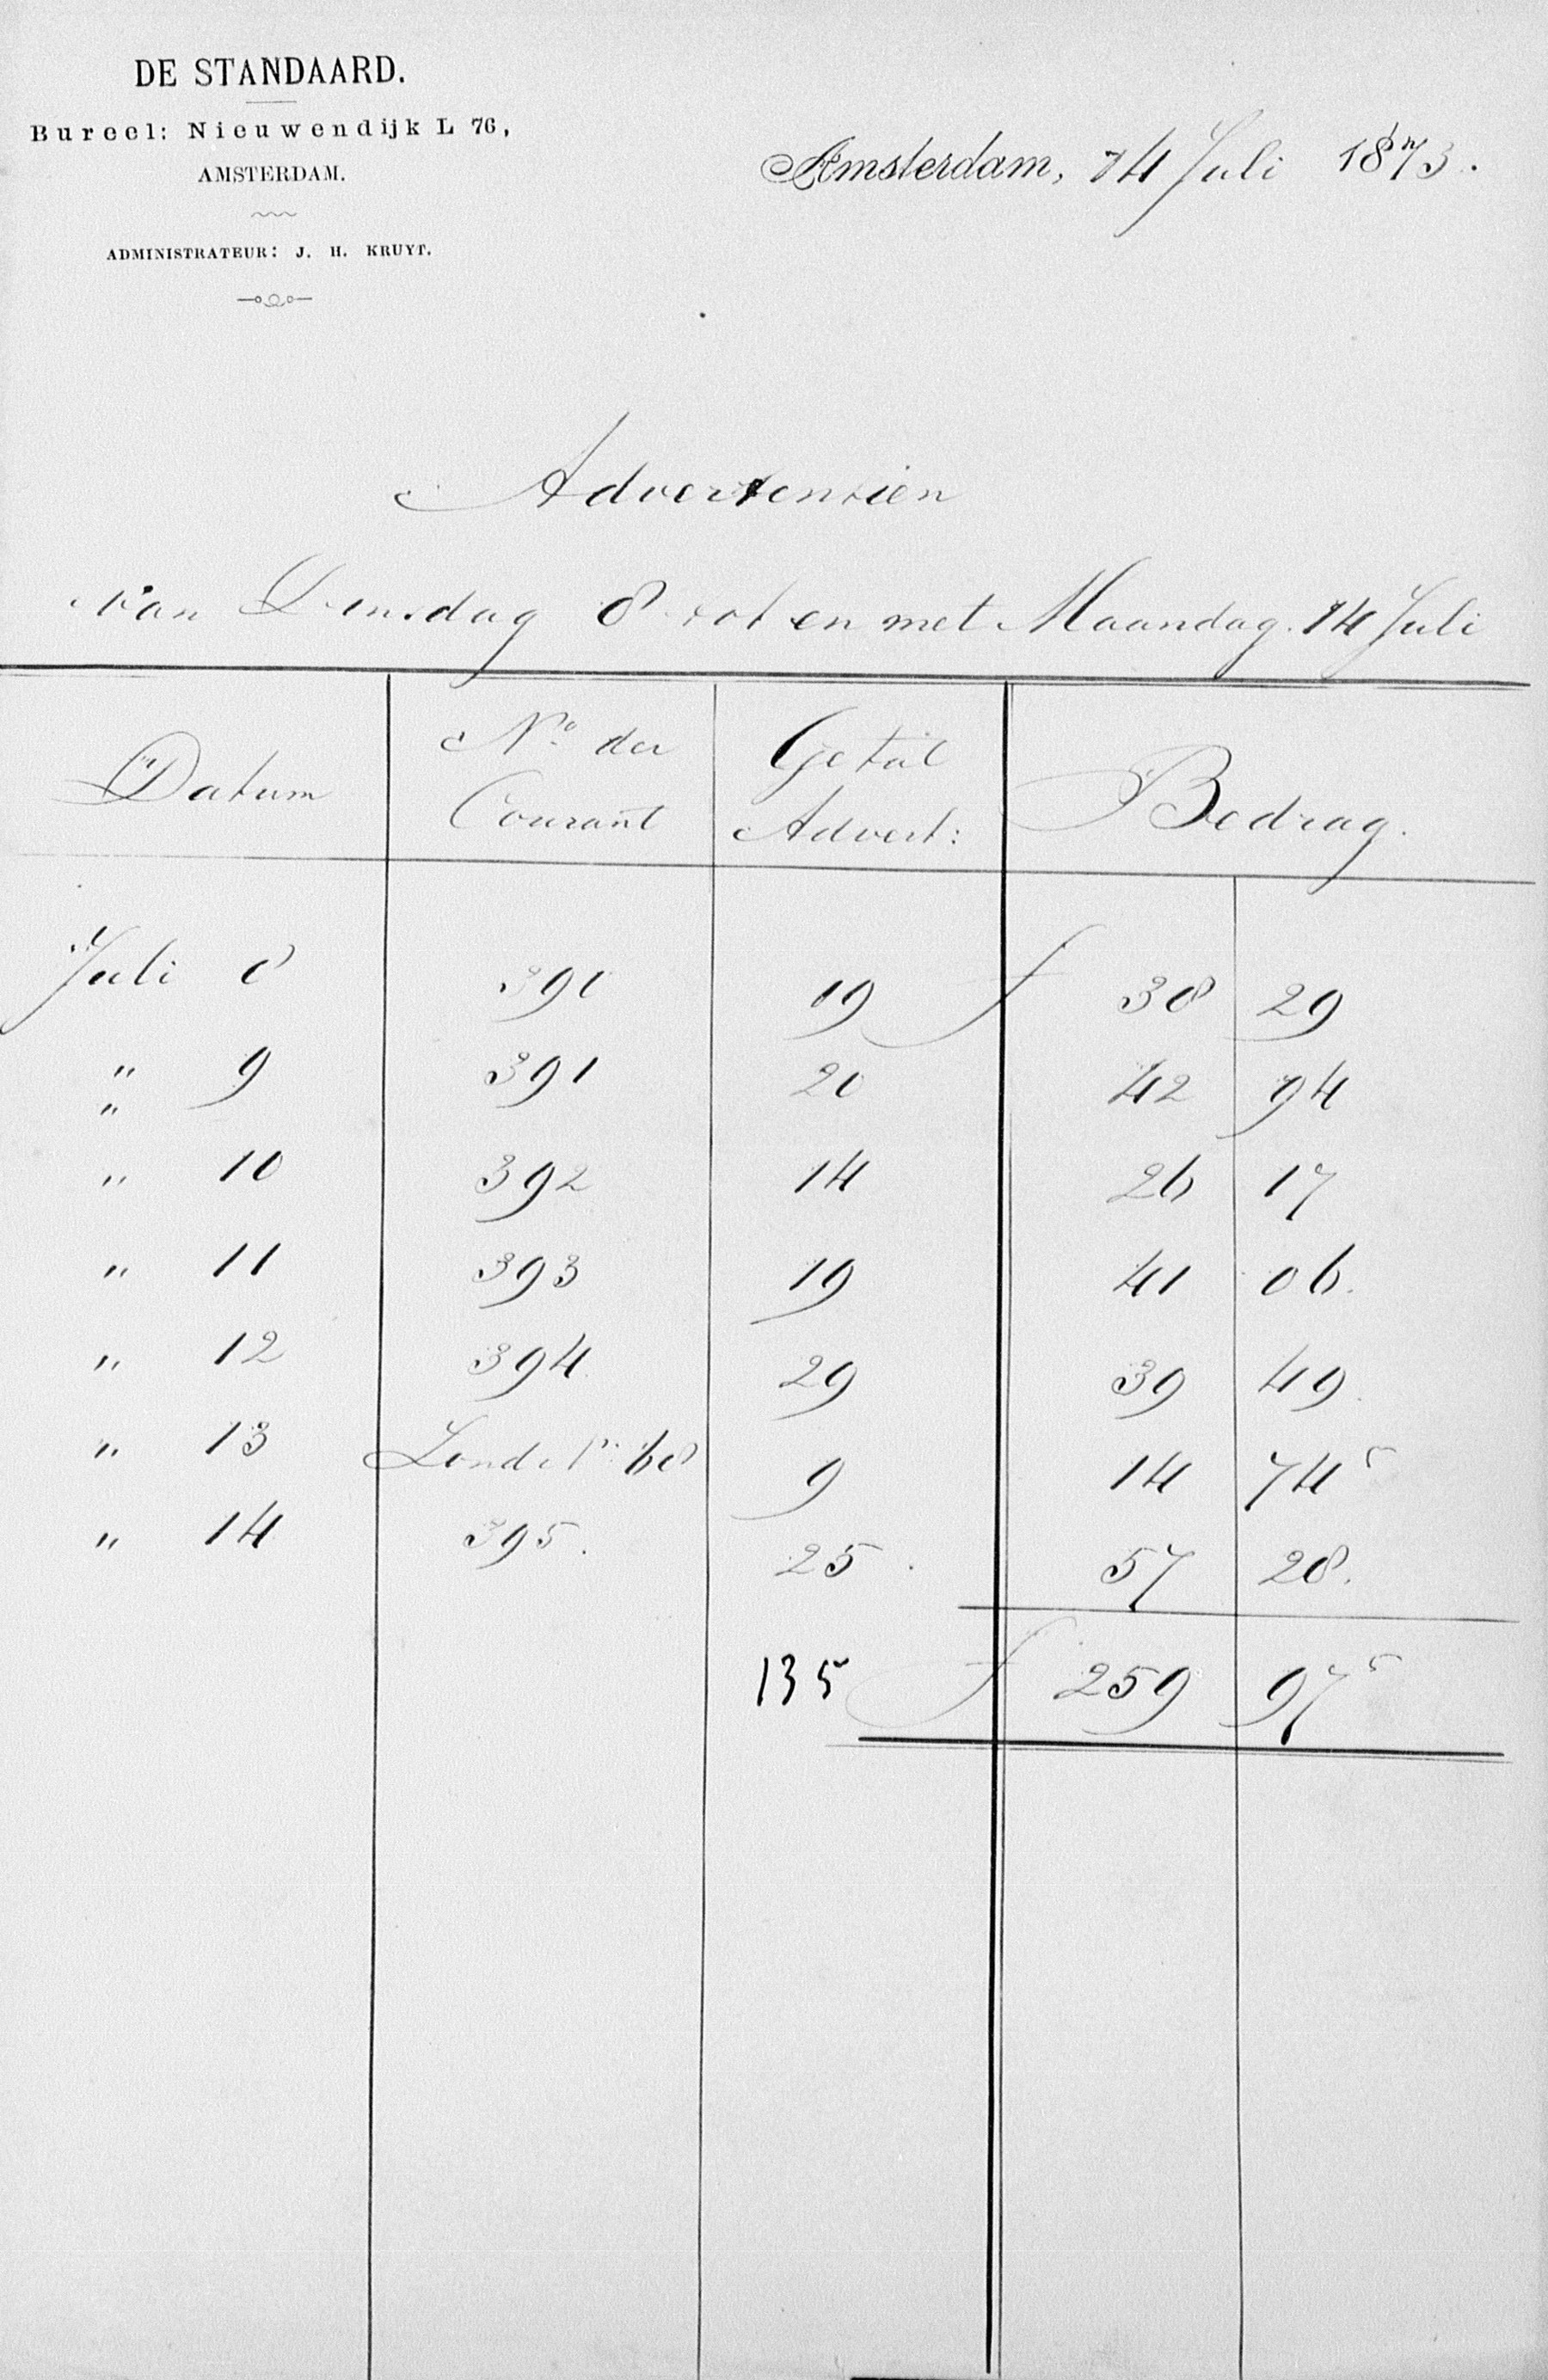 DE STANDAARD.
Bureel: Nieuwendijk L 76,
AMSTERDAM.
ADMINISTRATEUR: J. H. KRUYT.
Amsterdam, 14 Juli 1873.
Advertentien
van Dinsdag 8 tot en met Maandag 14 Juli
Datum No. der Courant Getal Advert: Bedrag.
Juli 8 390 19 f 38 29
" 9 391 20 42 94
"
" 10 392 14 26 17
" 11 393 19 41 06.
" 12 394 29 39 49.
" 13 68 9 14 74⁵
" 14 395. 25. 57 28.
135 f 259 97⁵